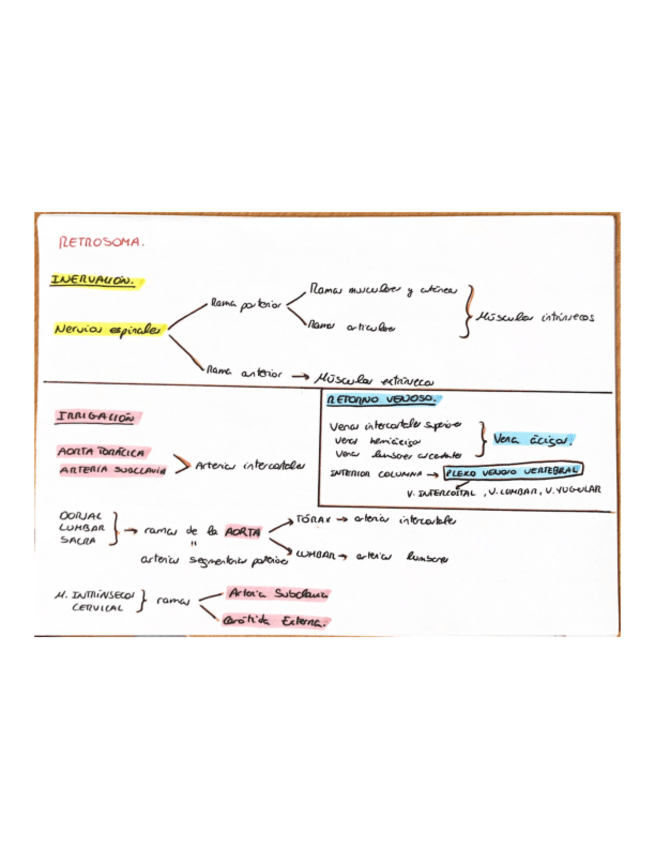 RETROSOMA.
INERVACIÓN.
Nervios espinales
Rama posterior
Ramas musculares y cutáneas
Ramas articulares
Músculos intrínsecos
Rama anterior → Músculos extrínsecos
IRRIGACIÓN
AORTA TORÁCICA
ARTERIA SUBCLAVIA
Arterias intercostales
RETORNO VENOSO.
Venas intercostales superiores
Venas hemiácigos
Venas lumbares ascendentes
Vena ácigos.
INTERIOR COLUMNA → PLEXO VENOSO VERTEBRAL
V. INTERCOSTAL, V. LUMBAR, V. YUGULAR
DORSAL
LUMBAR
SACRA
→ ramas de la AORTA
"
arterias segmentarias posteriores
TÓRAX → arterias intercostales
LUMBAR → arterias lumbares
M. INTRÍNSECOS
CERVICAL
ramas
Arteria Subclavia
Carótida Externa.